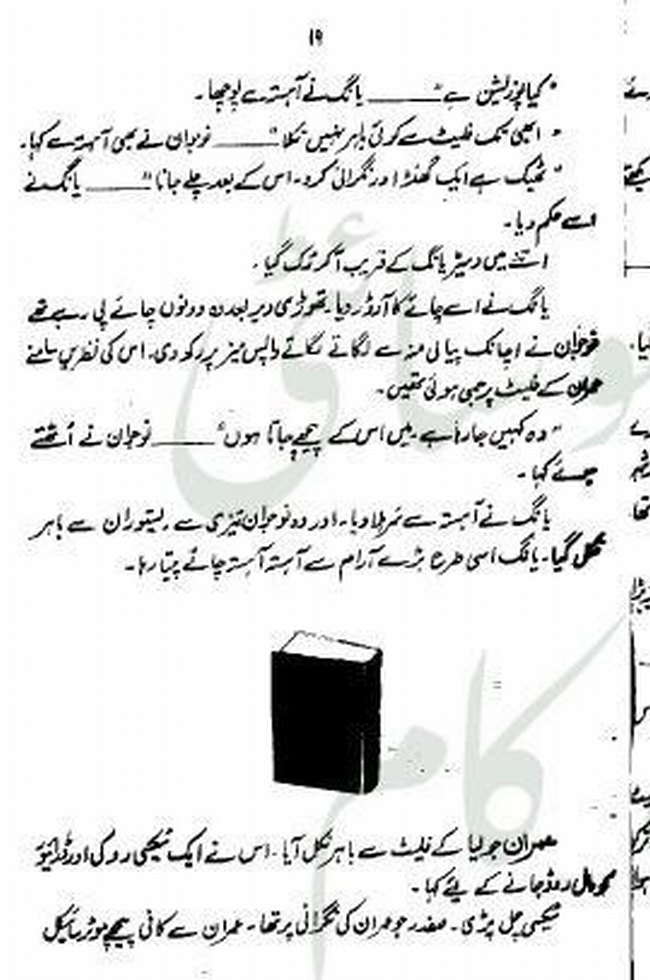 ۱۹
"کیا پوزیشن ہے" ــــــ یانگ نے آہستہ سے پوچھا۔
"ابھی تک فلیٹ سے کوئی باہر نہیں نکلا" ــــــ نوجوان نے بھی آہستہ سے کہا۔
"ٹھیک ہے ایک گھنٹہ اور نگرانی کرو۔ اس کے بعد چلے جانا" ــــــ یانگ نے
اسے حکم دیا۔
اتنے میں ویٹر یانگ کے قریب آکر رک گیا۔
یانگ نے اسے چائے کا آرڈر دیا۔ تھوڑی دیر بعد ن دونوں چائے پی رہے تھے
نوجوان نے اچانک پیالی منہ سے لگاتے لگاتے واپس میز پر رکھ دی۔ اس کی نظریں سامنے
عمران کے فلیٹ پر جمی ہوئی تھیں۔
"وہ کہیں جا رہا ہے۔ میں اس کے پیچھے جاتا ہوں" ــــــ نوجوان نے اٹھتے
ہوئے کہا۔
یانگ نے آہستہ سے سر ہلا دیا۔ اور وہ نوجوان تیزی سے ریستوران سے باہر
نکل گیا۔ یانگ اسی طرح بڑے آرام سے آہستہ آہستہ چائے پیتا رہا۔
عمران جولیا کے فلیٹ سے باہر نکل آیا۔ اس نے ایک ٹیکسی روکی اور ڈرائیور
روڈ جانے کے لیئے کہا۔
ٹیکسی چل پڑی۔ صفدر جو عمران کی نگرانی پر تھا۔ عمران سے کافی پیچھے موٹر سائیکل